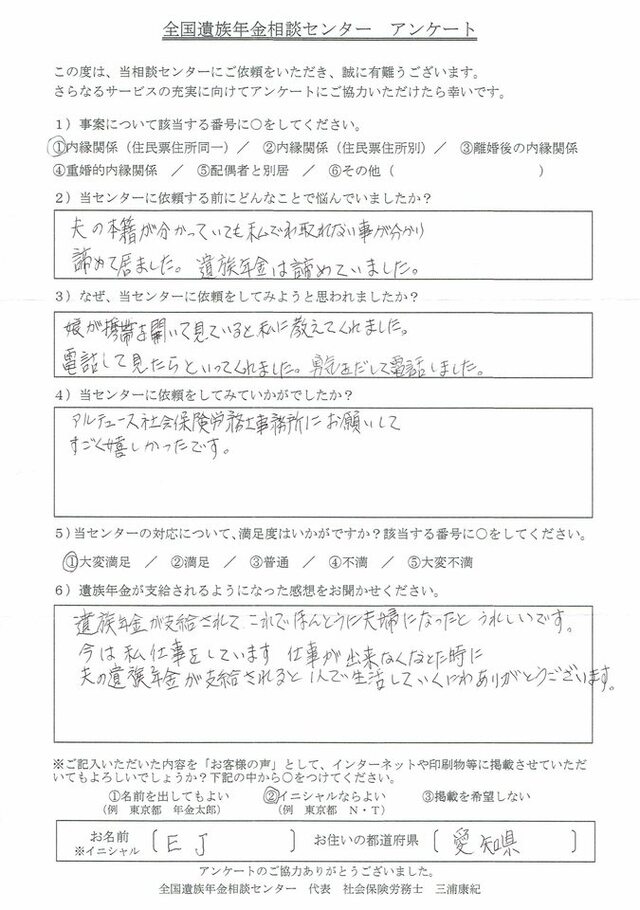 全国遺族年金相談センター　アンケート
この度は、当相談センターにご依頼をいただき、誠に有難うございます。
さらなるサービスの充実に向けてアンケートにご協力いただけたら幸いです。
1）事案について該当する番号に○をしてください。
①内縁関係（住民票住所同一）／　②内縁関係（住民票住所別）／　③離婚後の内縁関係
④重婚的内縁関係　／　⑤配偶者と別居　／　⑥その他（　　　　　　　　　　）
2）当センターに依頼する前にどんなことで悩んでいましたか？
夫の本籍が分かっていても私でわ取れない事が分かり
諦めて居ました。遺族年金は諦めていました。
3）なぜ、当センターに依頼をしてみようと思われましたか？
娘が携帯を開いて見ていると私に教えてくれました。
電話して見たらといってくれました。勇気をだして電話しました。
4）当センターに依頼をしてみていかがでしたか？
アルテュース社会保険労務士事務所にお願いして
すごく嬉しかったです。
5）当センターの対応について、満足度はいかがですか？該当する番号に○をしてください。
①大変満足　／　②満足　／　③普通　／　④不満　／　⑤大変不満
6）遺族年金が支給されるようになった感想をお聞かせください。
遺族年金が支給されて これでほんとうに夫婦になったと うれしいです。
今は 私仕事をしています 仕事が出来なくなった時に
夫の遺族年金が支給されると 1人で生活していくにわ ありがとうございます。
※ご記入いただいた内容を「お客様の声」として、インターネットや印刷物等に掲載させていただ
いてもよろしいでしょうか？下記の中から○をつけてください。
①名前を出してもよい　　②イニシャルならよい　　③掲載を希望しない
（例　東京都　年金太郎）　　（例　東京都　N・T）
お名前
※イニシャル
（ E J ）　お住いの都道府県（ 愛知県 ）
アンケートのご協力ありがとうございました。
全国遺族年金相談センター　代表　社会保険労務士　三浦康紀